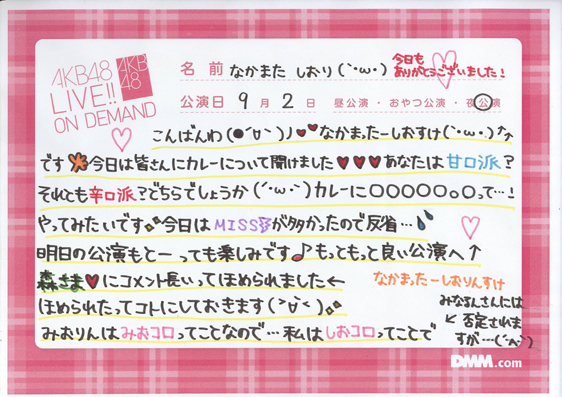 AKB48
LIVE!!
ON DEMAND
AKB
48
名前 なかまた しおり(`･ω･)
今日も
ありがとうございました!
公演日 9月2日 昼公演・おやつ公演・夜公演
こんばんわ(●´∀`)ノ♥♥なかまったーしおすけ(`･ω･)↑↑
です 今日は皆さんにカレーについて聞けました♥♥♥あなたは甘口派?
それとも辛口派?どちらでしょうか(´･ω･)カレーに○○○○○。○って…!
やってみたいです 今日はMISSが多かったので反省…
明日の公演もとーっても楽しみです♪もっともっと良い公演へ↑
森さま♥にコメント長いってほめられました←
ほめられたってコトにしておきます(´∀`)
みおりんはみおコロってことなので…私はしおコロってことで
なかまったーしおりんすけ
みなるんさんには
↙否定されま
すが…(´･ω･`)
DMM.com